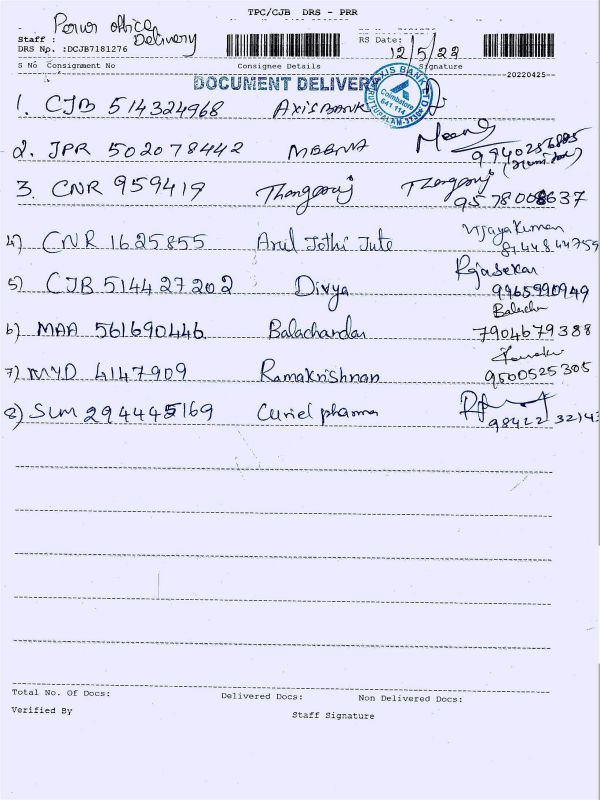 TPC/CJB DRS - PRR
Perur office
Staff : Delivery
DRS Np. :DCJB7181276
RS Date: 12/5/22
S No Consignment No Consignee Details Signature
20220425
DOCUMENT DELIVERY
AXIS BANK LTD
Coimbatore
641 114
1. CJB 514324968 AXIS BANK
2. JPR 502078442 MEENA Meena
3. CNR 959419 Thangaraj Thangaraj
9578008637
4) CNR 1625855 Arul Jothi Jute Vijayakumar
8744844759
5) CJB 514427202 Divya Rajasekar
9965990949
6) MAA 561690446 Balachandar Balachan
7904679388
7) MYD 4147909 Ramakrishnan
9500525305
8) SLM 294445169 Curiel pharma
98422 32143
Total No. Of Docs: Delivered Docs: Non Delivered Docs:
Verified By
Staff Signature